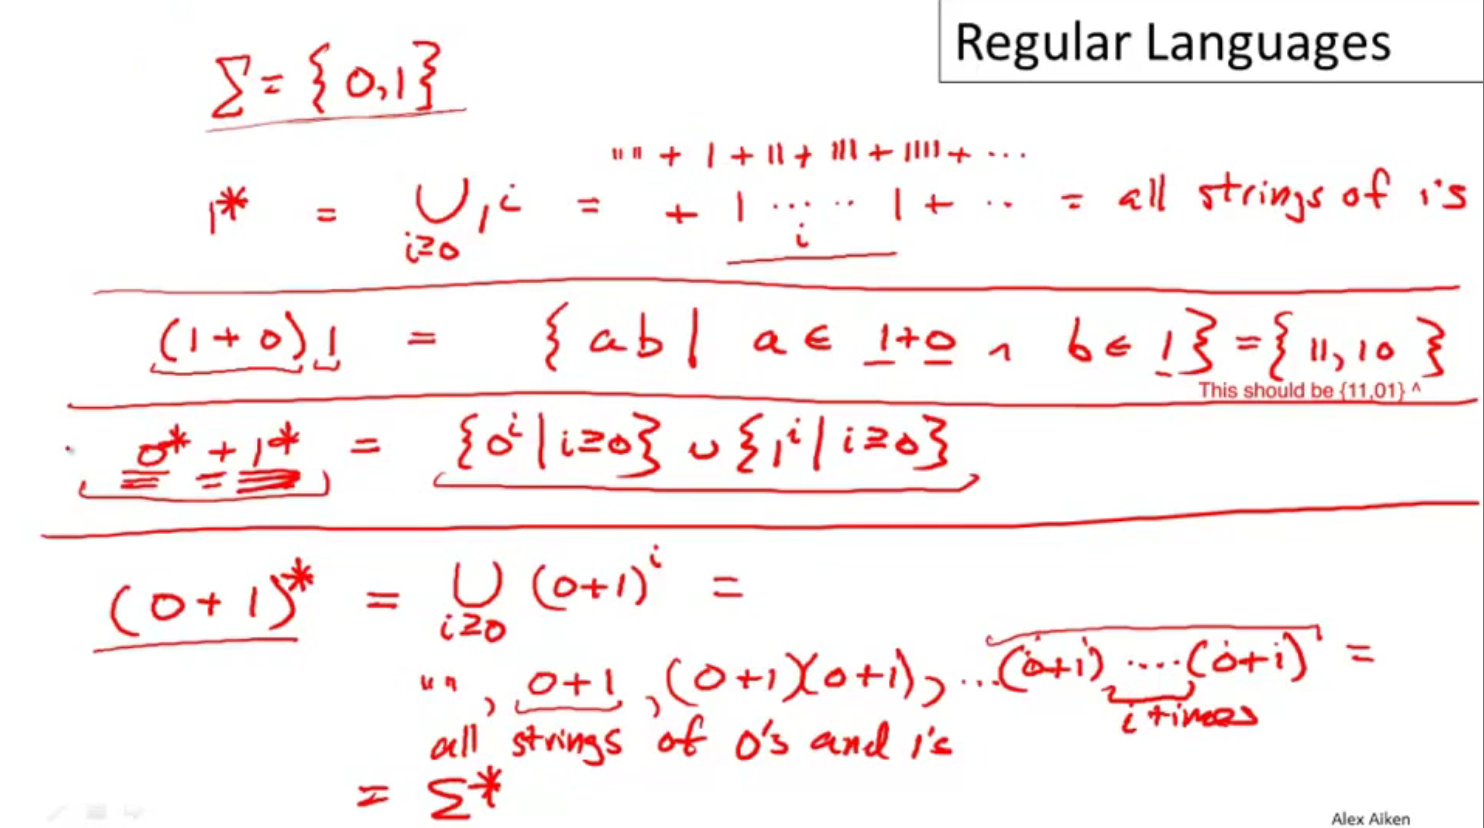 Regular Languages
Σ = {0,1}
"" + 1 + 11 + 111 + 1111 + ...
1* = ∪ i≥0 1^i = + 1 ..... 1 + .. = all strings of 1's
i
(1+0)1 = {ab | a ∈ 1+0 ∧ b ∈ 1} = {11, 10}
This should be {11,01} ^
0* + 1* = {0^i | i≥0} ∪ {1^i | i≥0}
(0+1)* = ∪ i≥0 (0+1)^i =
"", 0+1, (0+1)(0+1), ...(0+1) ....(0+1) =
i times
all strings of 0's and 1's
= Σ*
Alex Aiken